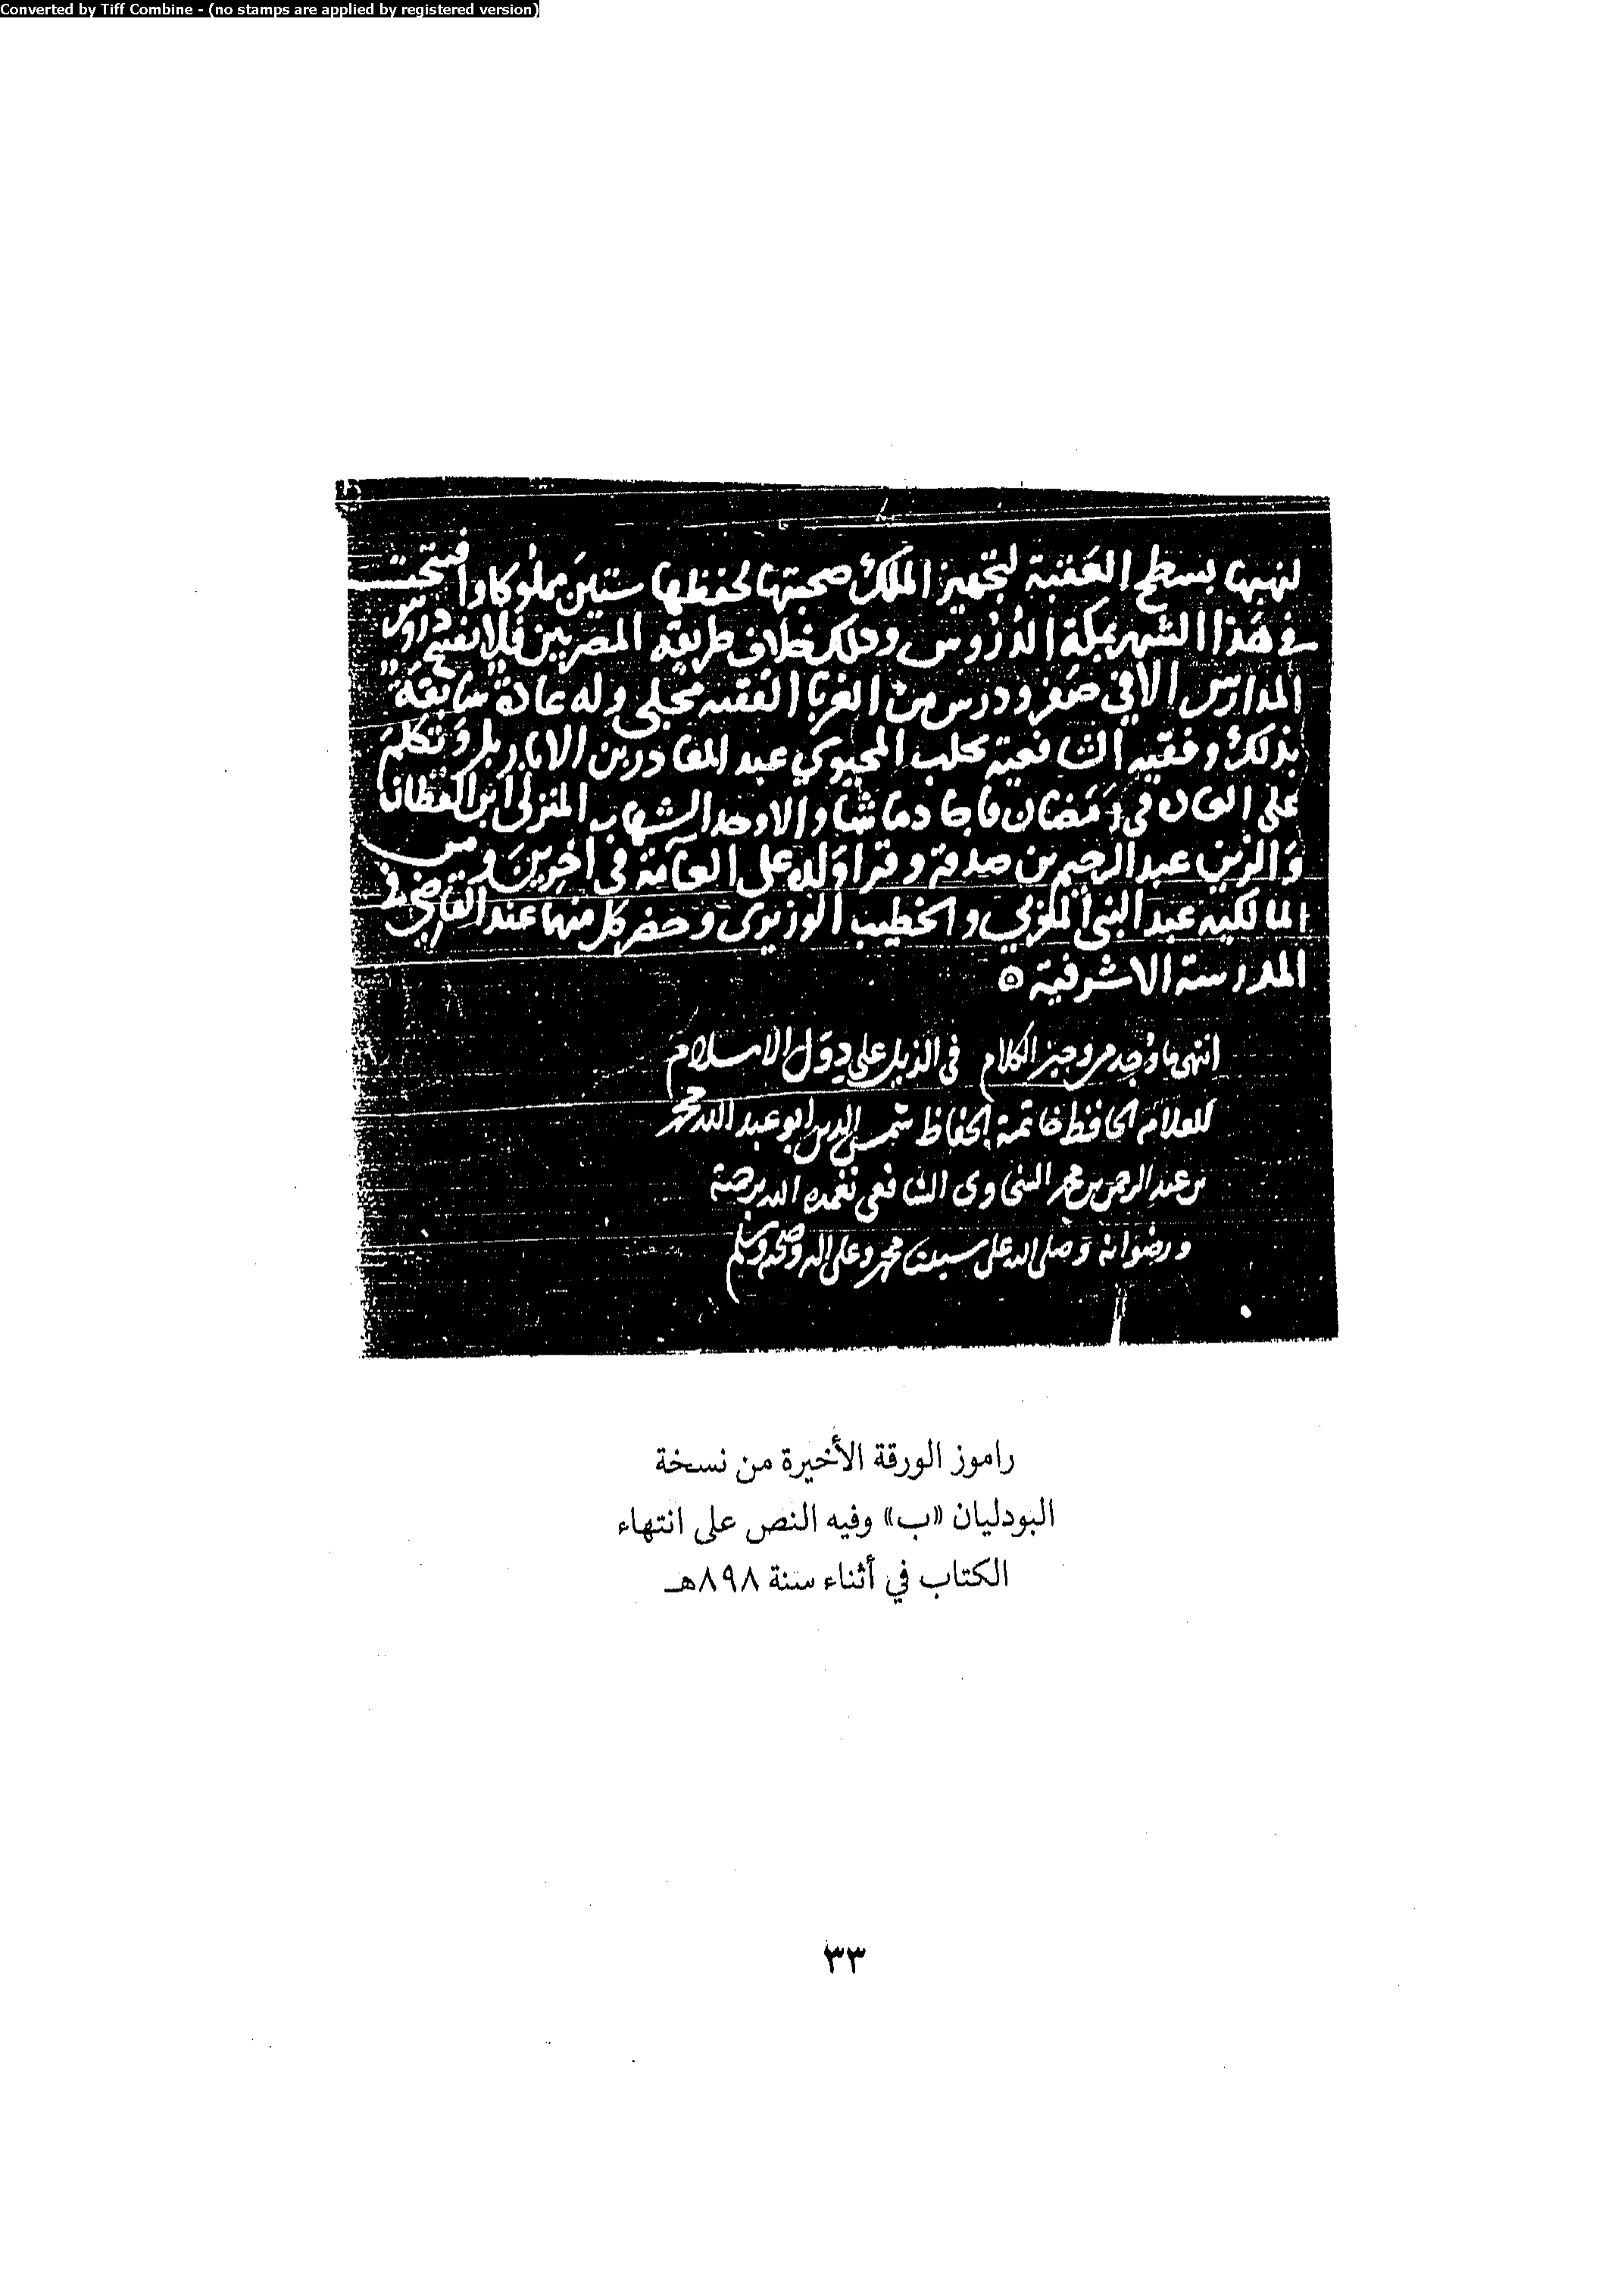 Converted by Tiff Combine - (no stamps are applied by registered version)
لنهبها بسطح العقبة لتجهيز الملك صحبتها لحفظها ستين مملوكا وافتتحت
في هذا الشهر بمكة الدروس وذلك خلاف طريقة المصريين فلا تفتح دروس
المدارس الا في صفر ودرس من الغربا الفقيه محلي وله عادة سابقة
بذلك وفقيه الشافعية بحلب المحيوي عبد القادر بن الابار بل وتكلم
على العان في رمضان ماشا والاوحد الشهاب المنزلي ابن القطان
والزين عبد الرحيم بن صدقة وقرا ولد على العامة في اخرين ومن
المالكية عبد النبي المغربي والخطيب الوزيري وحضر كل منهما عند القاضي في
المدرسة الاشرفية ه
انتهى ما وجد من وجيز الكلام في الذيل على دول الاسلام
للعلام الحافظ خاتمة الحفاظ شمس الدين ابو عبد الله محمد
بن عبد الرحمن بن محمد السخاوى الشافعى تغمده الله برحمته
ورضوانه وصلى الله على سيدنا محمد وعلى اله وصحبه وسلم
راموز الورقة الأخيرة من نسخة
البودليان «ب» وفيه النص على انتهاء
الكتاب في أثناء سنة ٨٩٨هـ
٣٣